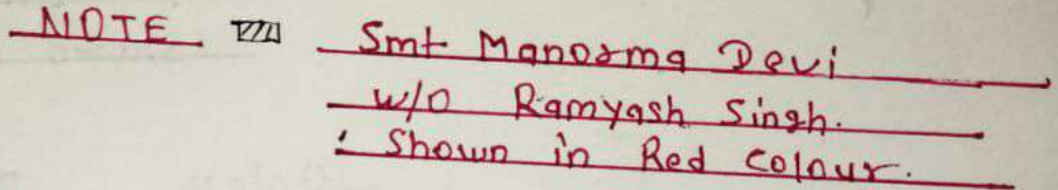 NOTE Smt Manorma Devi
w/o Ramyash Singh.
: Shown in Red Colour.